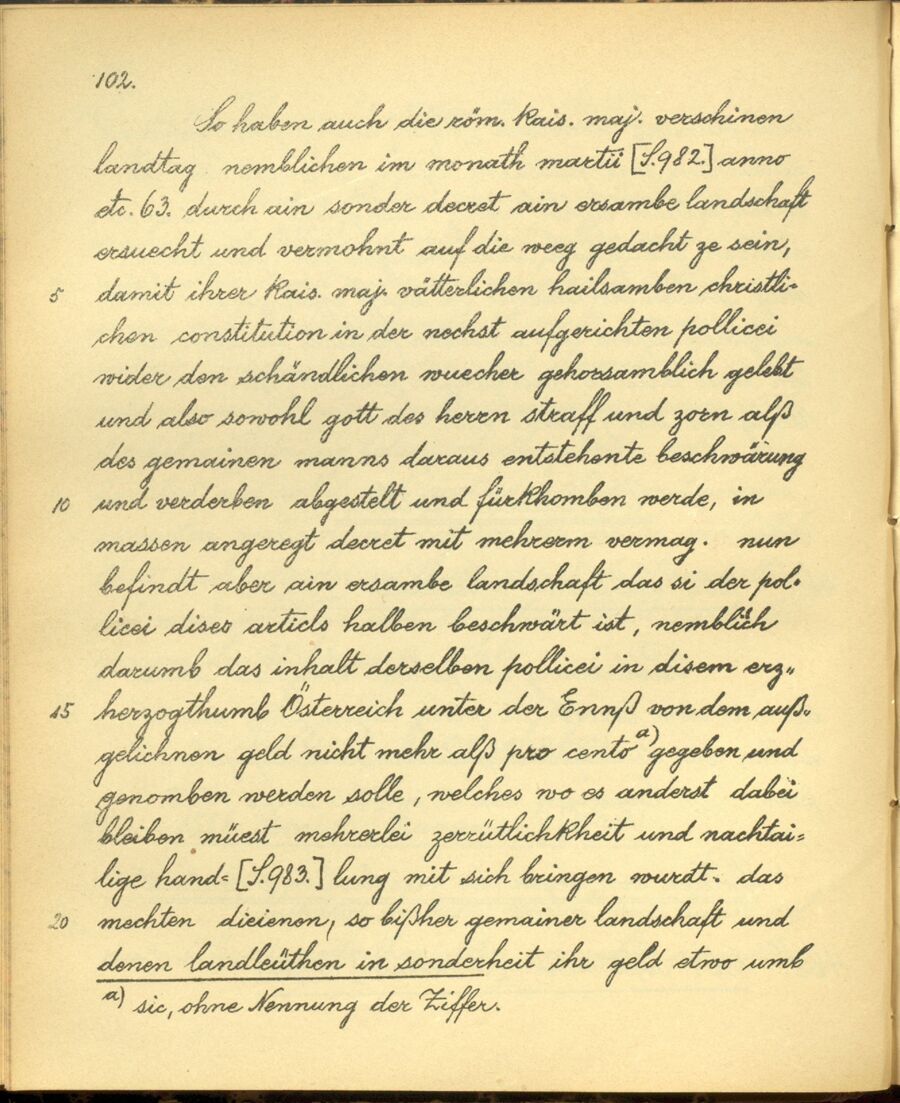 102.
So haben auch die röm. kais. maj. verschinen
landtag nemblichen im monath martii [S.982.] anno
etc. 63. durch ain sonder decret ain ersambe landschaft
ersuecht und vermohnt auf die weeg gedacht ze sein,
5 damit ihrer kais. maj. vätterlichen hailsamben christli-
chen constitution in der nechst aufgerichten pollicei
wider den schändlichen wuecher gehorsamblich gelebt
und also sowohl gott des herrn straff und zorn alß
des gemainen manns daraus entstehente beschwärung
10 und verderben abgestelt und fürkhomben werde, in
massen angeregt decret mit mehrerm vermag. nun
befindt aber ain ersambe landschaft das si der pol-
licei dises articls halben beschwärt ist, nemblich
darumb das inhalt derselben pollicei in disem erz-
15 herzogthumb Österreich unter der Ennß von dem auß-
gelichnen geld nicht mehr alß pro cento a) gegeben und
genomben werden solle, welches wo es anderst dabei
bleiben müest mehrerlei zerrütlichkheit und nachtai-
lige hand= [S.983.] lung mit sich bringen wurdt. das
20 mechten dieienen, so bißher gemainer landschaft und
denen landleüthen in sonderheit ihr geld etwo umb
a) sic, ohne Nennung der Ziffer.